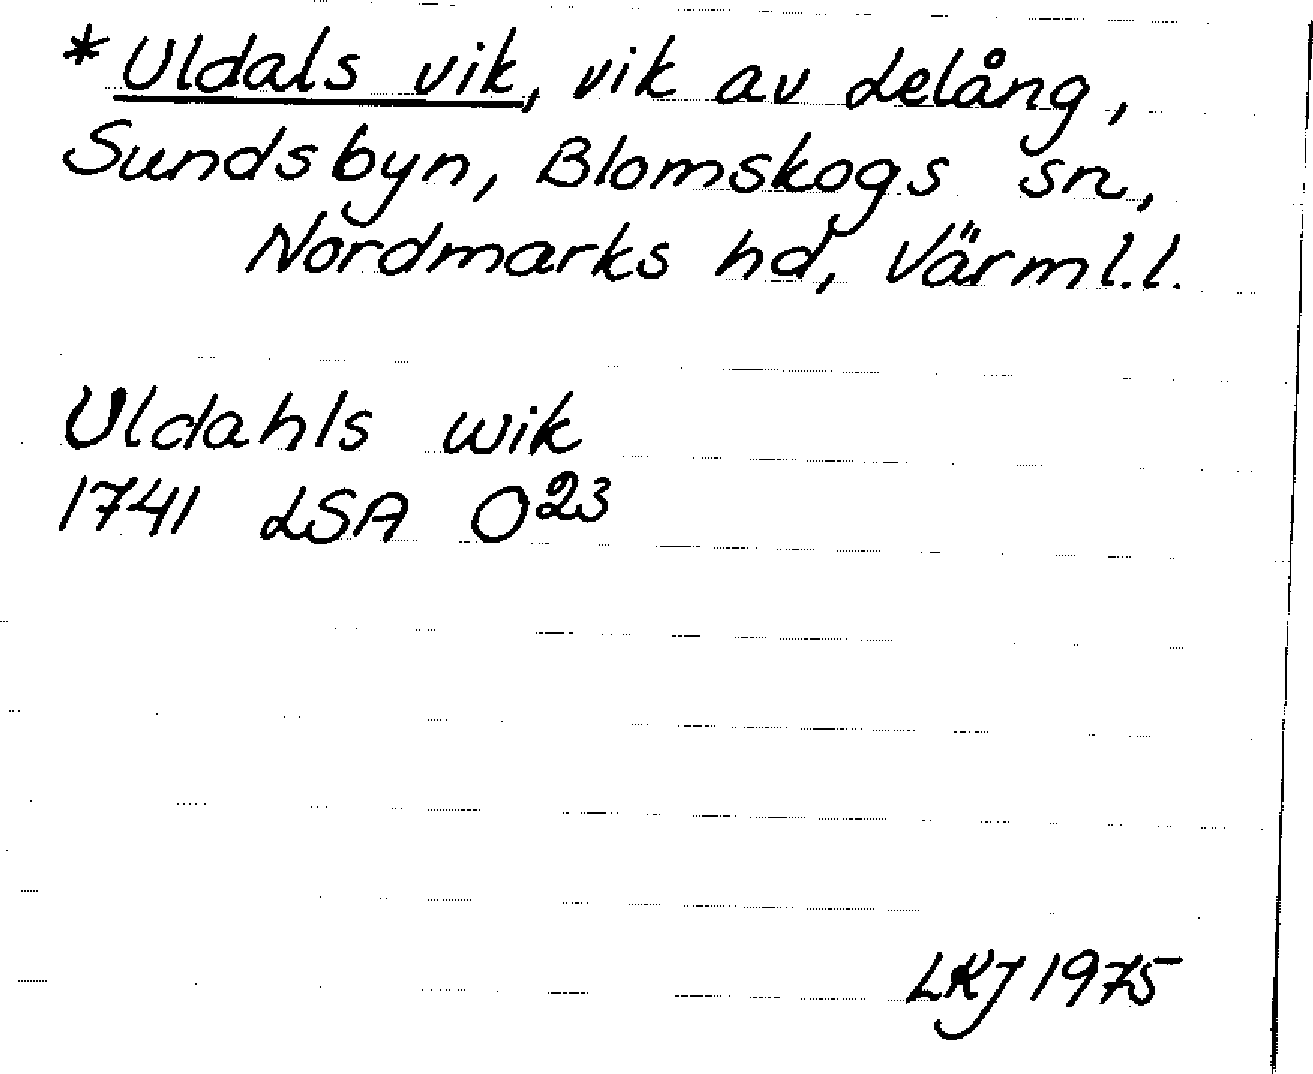 *Uldals vik, vik av Lelång,
Sundsbyn, Blomskogs sn,
Nordmarks hd, Värml.l.
Uldahls wik
1741 LSA O23
LKJ 1975